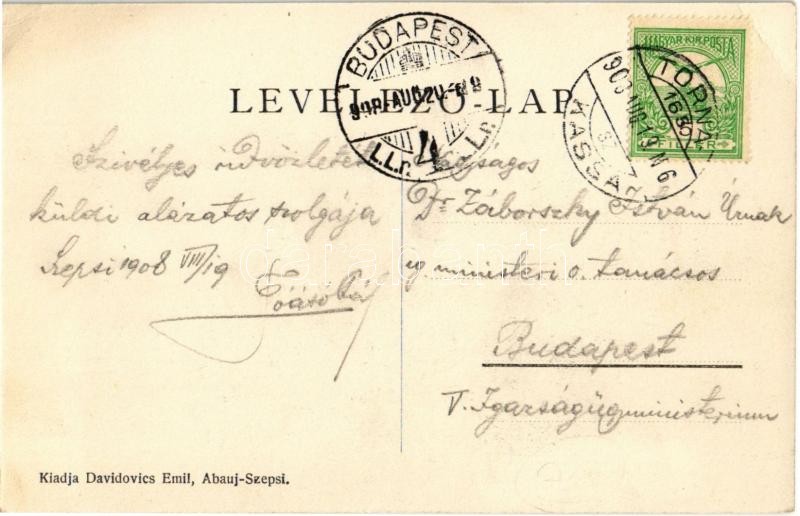 MAGYAR KIR. POSTA
FILLÉR
BUDAPEST
908 AUG 20
4
TORNA
KASSA
908 AUG 19 N6
LEVELEZŐ-LAP
Szivélyes üdvözletek
küldi alázatos szolgája
Szepsi 1908 VIII/19
Nagyságos
Dr Záborszky István Úrnak
ig. ministeri o. tanácsos
Budapest
V. Igazságügyministerium
Kiadja Davidovics Emil, Abauj-Szepsi.